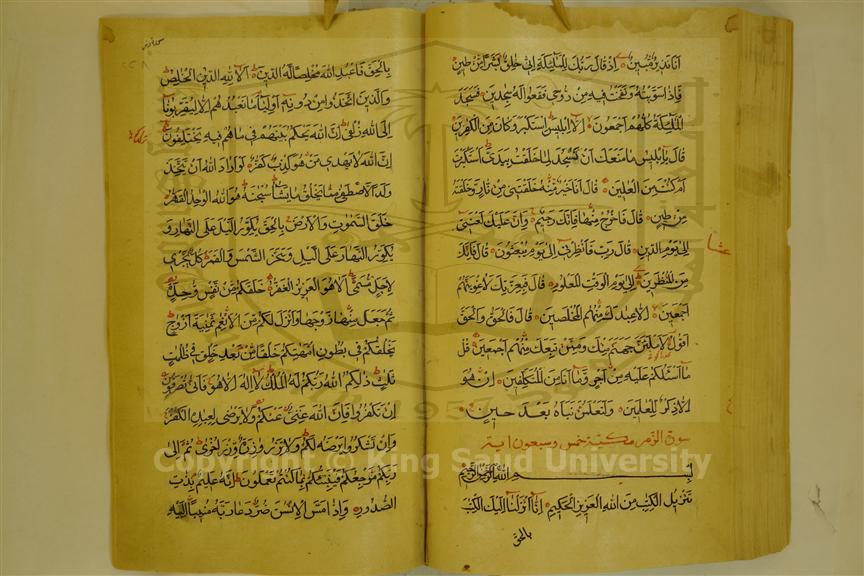 انا نذير مبين اذ قال ربك للملئكة اني خلق بشرا من طين
فاذا سويته ونفخت فيه من روحي فقعوا له سجدين فسجد
الملئكة كلهم اجمعون الا ابليس استكبر وكان من الكفرين
قال يابليس ما منعك ان تسجد لما خلقت بيدي استكبرت
ام كنت من العالين قال انا خير منه خلقتني من نار وخلقته
من طين قال فاخرج منها فانك رجيم وان عليك لعنتي
الى يوم الدين قال رب فانظرني الى يوم يبعثون قال فانك
من المنظرين الى يوم الوقت المعلوم قال فبعزتك لاغوينهم
اجمعين الا عبادك منهم المخلصين قال فالحق والحق
اقول لاملئن جهنم منك وممن تبعك منهم اجمعين قل
ما اسئلكم عليه من اجر وما انا من المتكلفين ان هو
الا ذكر للعلمين ولتعلمن نباه بعد حين
سورة الزمر مكية خمس وسبعون اية
بسم الله الرحمن الرحيم
تنزيل الكتب من الله العزيز الحكيم انا انزلنا اليك الكتب
بالحق
بالحق فاعبد الله مخلصا له الدين الا لله الدين الخالص
والذين اتخذوا من دونه اولياء ما نعبدهم الا ليقربونا
الى الله زلفى ان الله يحكم بينهم في ما هم فيه يختلفون
ان الله لا يهدي من هو كذب كفار لو اراد الله ان يتخذ
ولدا لاصطفى مما يخلق ما يشاء سبحنه هو الله الوحد القهار
خلق السموت والارض بالحق يكور اليل على النهار و
يكور النهار على اليل وسخر الشمس والقمر كل يجري
لاجل مسمى الا هو العزيز الغفار خلقكم من نفس وحدة
ثم جعل منها زوجها وانزل لكم من الانعم ثمنية ازوج
يخلقكم في بطون امهتكم خلقا من بعد خلق في ظلمت
ثلث ذلكم الله ربكم له الملك لا اله الا هو فانى تصرفون
ان تكفروا فان الله غني عنكم ولا يرضى لعباده الكفر
وان تشكروا يرضه لكم ولا تزر وازرة وزر اخرى ثم الى
ربكم مرجعكم فينبئكم بما كنتم تعملون انه عليم بذات
الصدور واذا مس الانسن ضر دعا ربه منيبا اليه
Copyright © King Saud University
1957